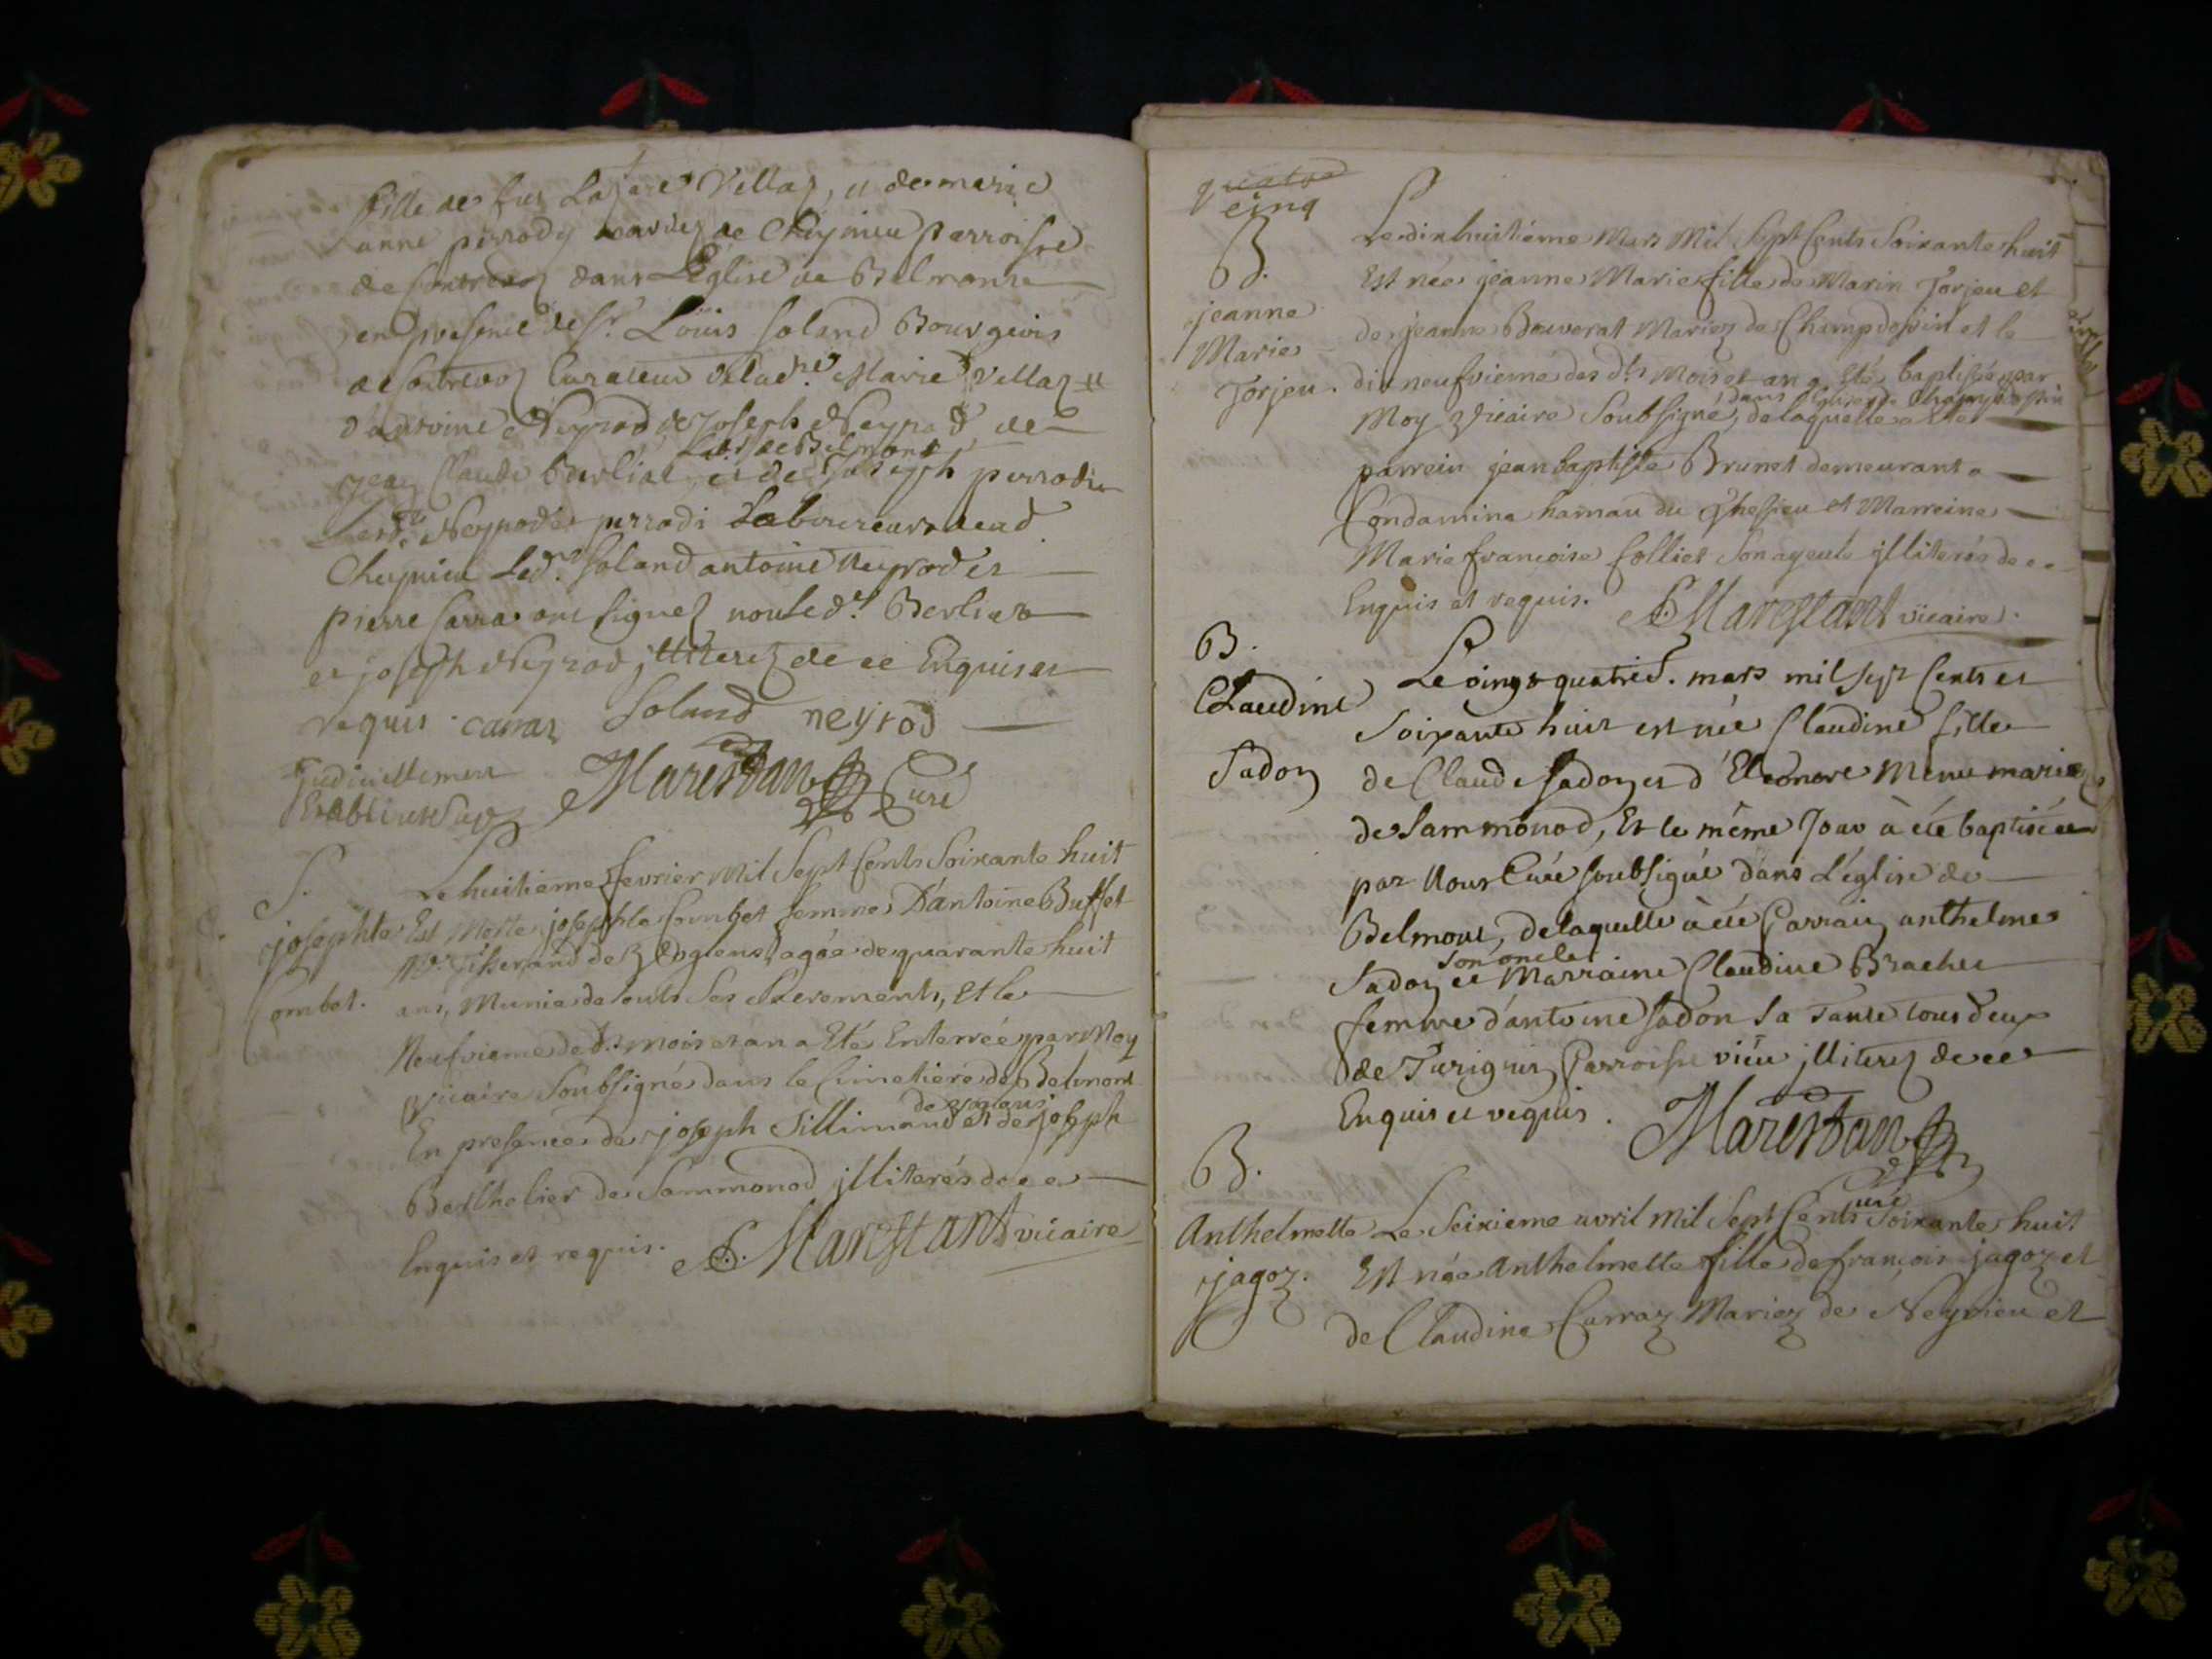 fille de feu Lazare Vellaz, et de marie
anne perrody mariez de Cheynieu parroisse
de Contrevoz dans L'Eglise de Belmont
en presence de Sr. Loüis Soland Bourgeois
de Contrevoz Curateur de lad.te Marie Vellaz
d'antoine Neyrod de Joseph Neyrod de
Lab.rs de Belmont
jean Claude berliat, et de Joseph perrodi
Neyrod et perrodi Laboureurs dud.
Cheynieu Led. Soland antoine Neyrod et
pierre Carra ont signez non led. Berliat
et joseph Neyrod jlliterez de ce Enquis et
requis. carraz Soland neyrod
Judiciellement
Marestan Curé
S.
josephte
Combet.
Le huitieme fevrier Mil Sept Cents Soixante huit
Est Morte josephte Combet femme D'antoine Buffet
Tisserand d'Ogiens, agée de quarante huit
ans, Munie de touts Ses Sacrements, et le
Neufvieme des d.ts mois et an a Eté Enterrée par Moy
vicaire Soubsigné dans le Cimetiére de Belmont
d'ogiens
En presence de joseph Sillimand et de joseph
Berthelier de Sammonod jlliterés de ce
Enquis et requis. Marestant vicaire
quatre
cinq
B.
jeanne
Marie
Torjeu.
Le dixhuitiéme Mars Mil Sept Cents Soixante huit
Est née jeanne Marie fille de Marin Torjeu et
de jeanne Bouverat Mariez de Champdossin et le
dixneufvieme des d.ts Mois et an a Eté baptisée par
dans l'Eglise de Champdossin
Moy Vicaire Soubsigné, de laquelle a Eté
parrein jean baptiste Brunet demeurant a
Condamine hamau du Thesieu et Marreine
Marie francoise Colliet Son ayeule jlliterés de ce
Enquis et requis. Marestant vicaire.
B.
Claudine
Sadon
Le vingt quatrie. mars mil sept Cents et
Soixante huit est née Claudine fille
de Claude Sadon et d'Eleonore Menu mariez
de Sammonod, Et le même Jour à été baptisée
par Nous Curé soubsigné dans L'église de
Belmont, de laquelle à été Parrain anthelme
Son oncle
Sadon et Marraine Claudine Brachet
femme d'antoine Sadon Sa Tante tous deux
de Turignin Parroisse vieu jlliterez de ce
Enquis et requis. Marestan
curé
B.
Anthelmette
jagoz.
Le Seixieme avril Mil Sept Cents Soixante huit
Est née Anthelmette fille de françois jagoz et
de Claudine Carraz Mariez de Neyrieu et